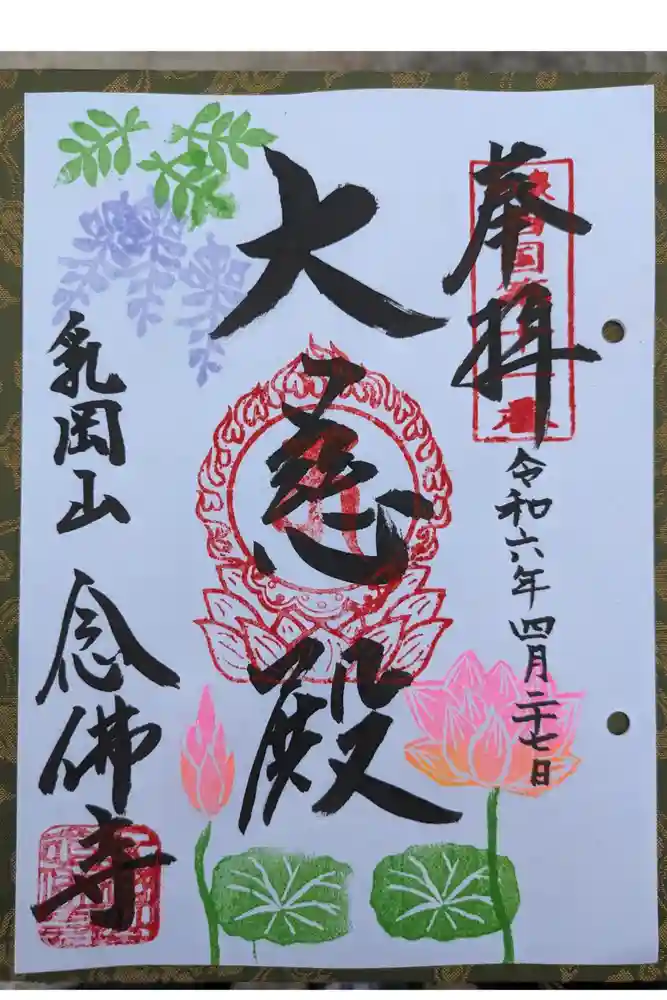 奉拝
令和六年四月二十七日
大慈殿
乳岡山 念佛寺